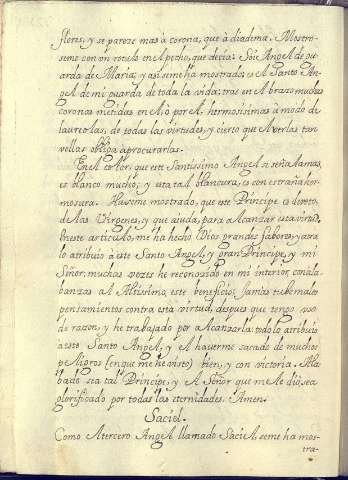 flores, y se pareze mas à corona, que à diadema. Mostro-
seme con un rotulo en el pecho, que decia: Soi Angel de gu-
arda de Maria; y asi se me ha mostrado; es el Santo An-
gel de mi guarda de toda la vida; trae en el brazo muchas
coronas metidas en el, ò por el, hermosissimas à modo de
laureolas, de todas las virtudes, y cierto que el verlas tan
vellas obliga aprocurarlas.
En el color, que este Santissimo Angel se señala mas,
es blanco mucho, y esta tal blancura, es con estraña her-
mosura. Haseme mostrado, que este Principe es devoto,
de las Virgenes, y que ajuda, para alcanzar esta virtud,
En este articulo, me ha hecho Dios grandes fabores, y aora
lo atribuio à este Santo Angel, y gran Principe, y mi
Señor: muchas vezes he reconozido en mi interior, con ala-
banzas al Altissimo, este beneficio; Jamas tube malos
pensamientos contra esta virtud, despues que tengo uso
de razon, y he trabajado por alcanzarla: todo lo atribuio
à este Santo Angel, y el haverme sacado de muchos
peligros (en que me he visto) bien, y con victoria. Ala-
bado sea tal Principe, y el Señor que me le dio, sea
glorificado por todas las eternidades. Amen.
Saciel.
Como el tercero Angel llamado Saciel, se me ha mos-
tra-